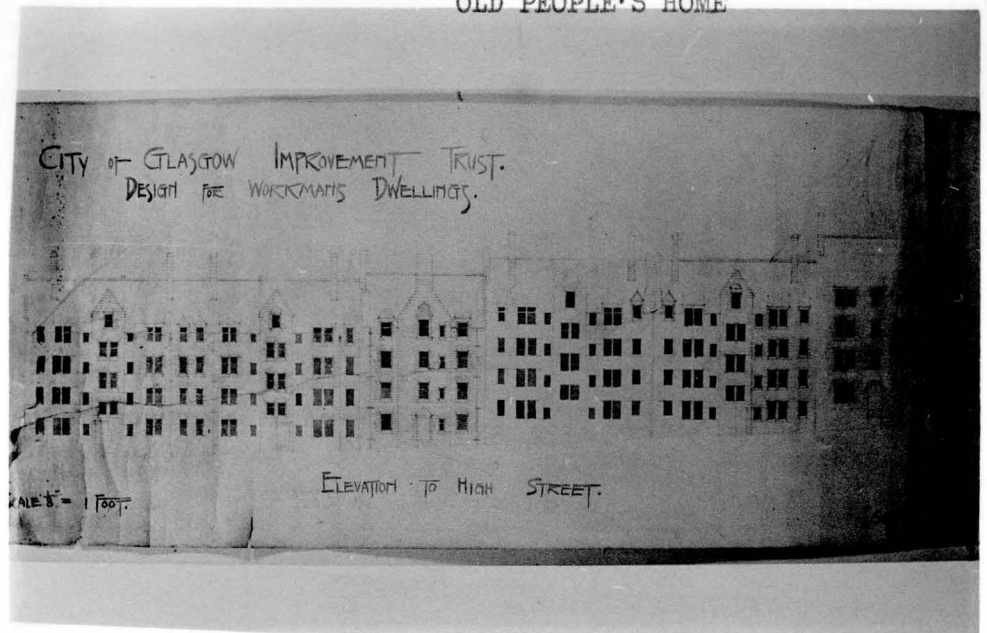 OLD PEOPLE'S HOME
CITY OF GLASGOW IMPROVEMENT TRUST.
DESIGN FOR WORKMANS DWELLINGS.
ELEVATION TO HIGH STREET.
SCALE 1/8" = 1 FOOT.